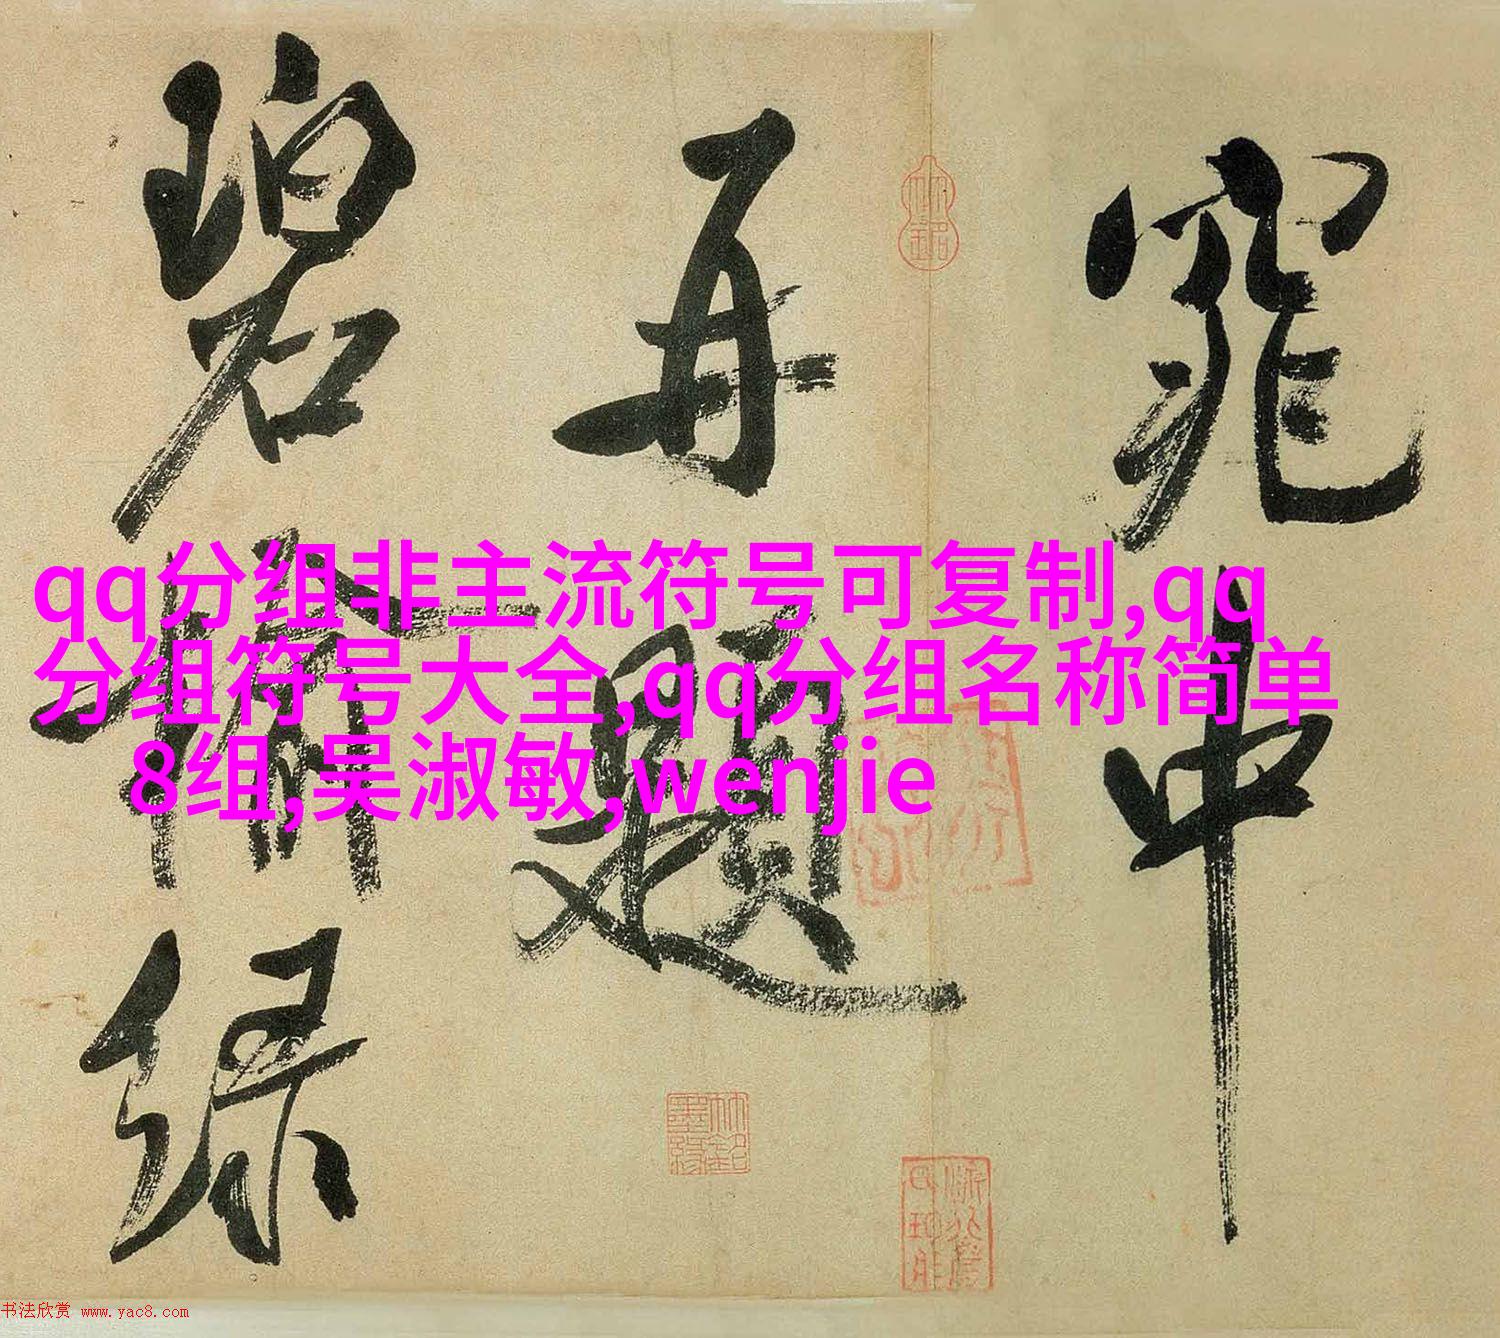 窕中
再題
碧榆綠
qq分组非主流符号可复制,qq
分组符号大全,qq分组名称简单
8组,吴淑敏,wenjie
书法欣赏 www.yac8.com